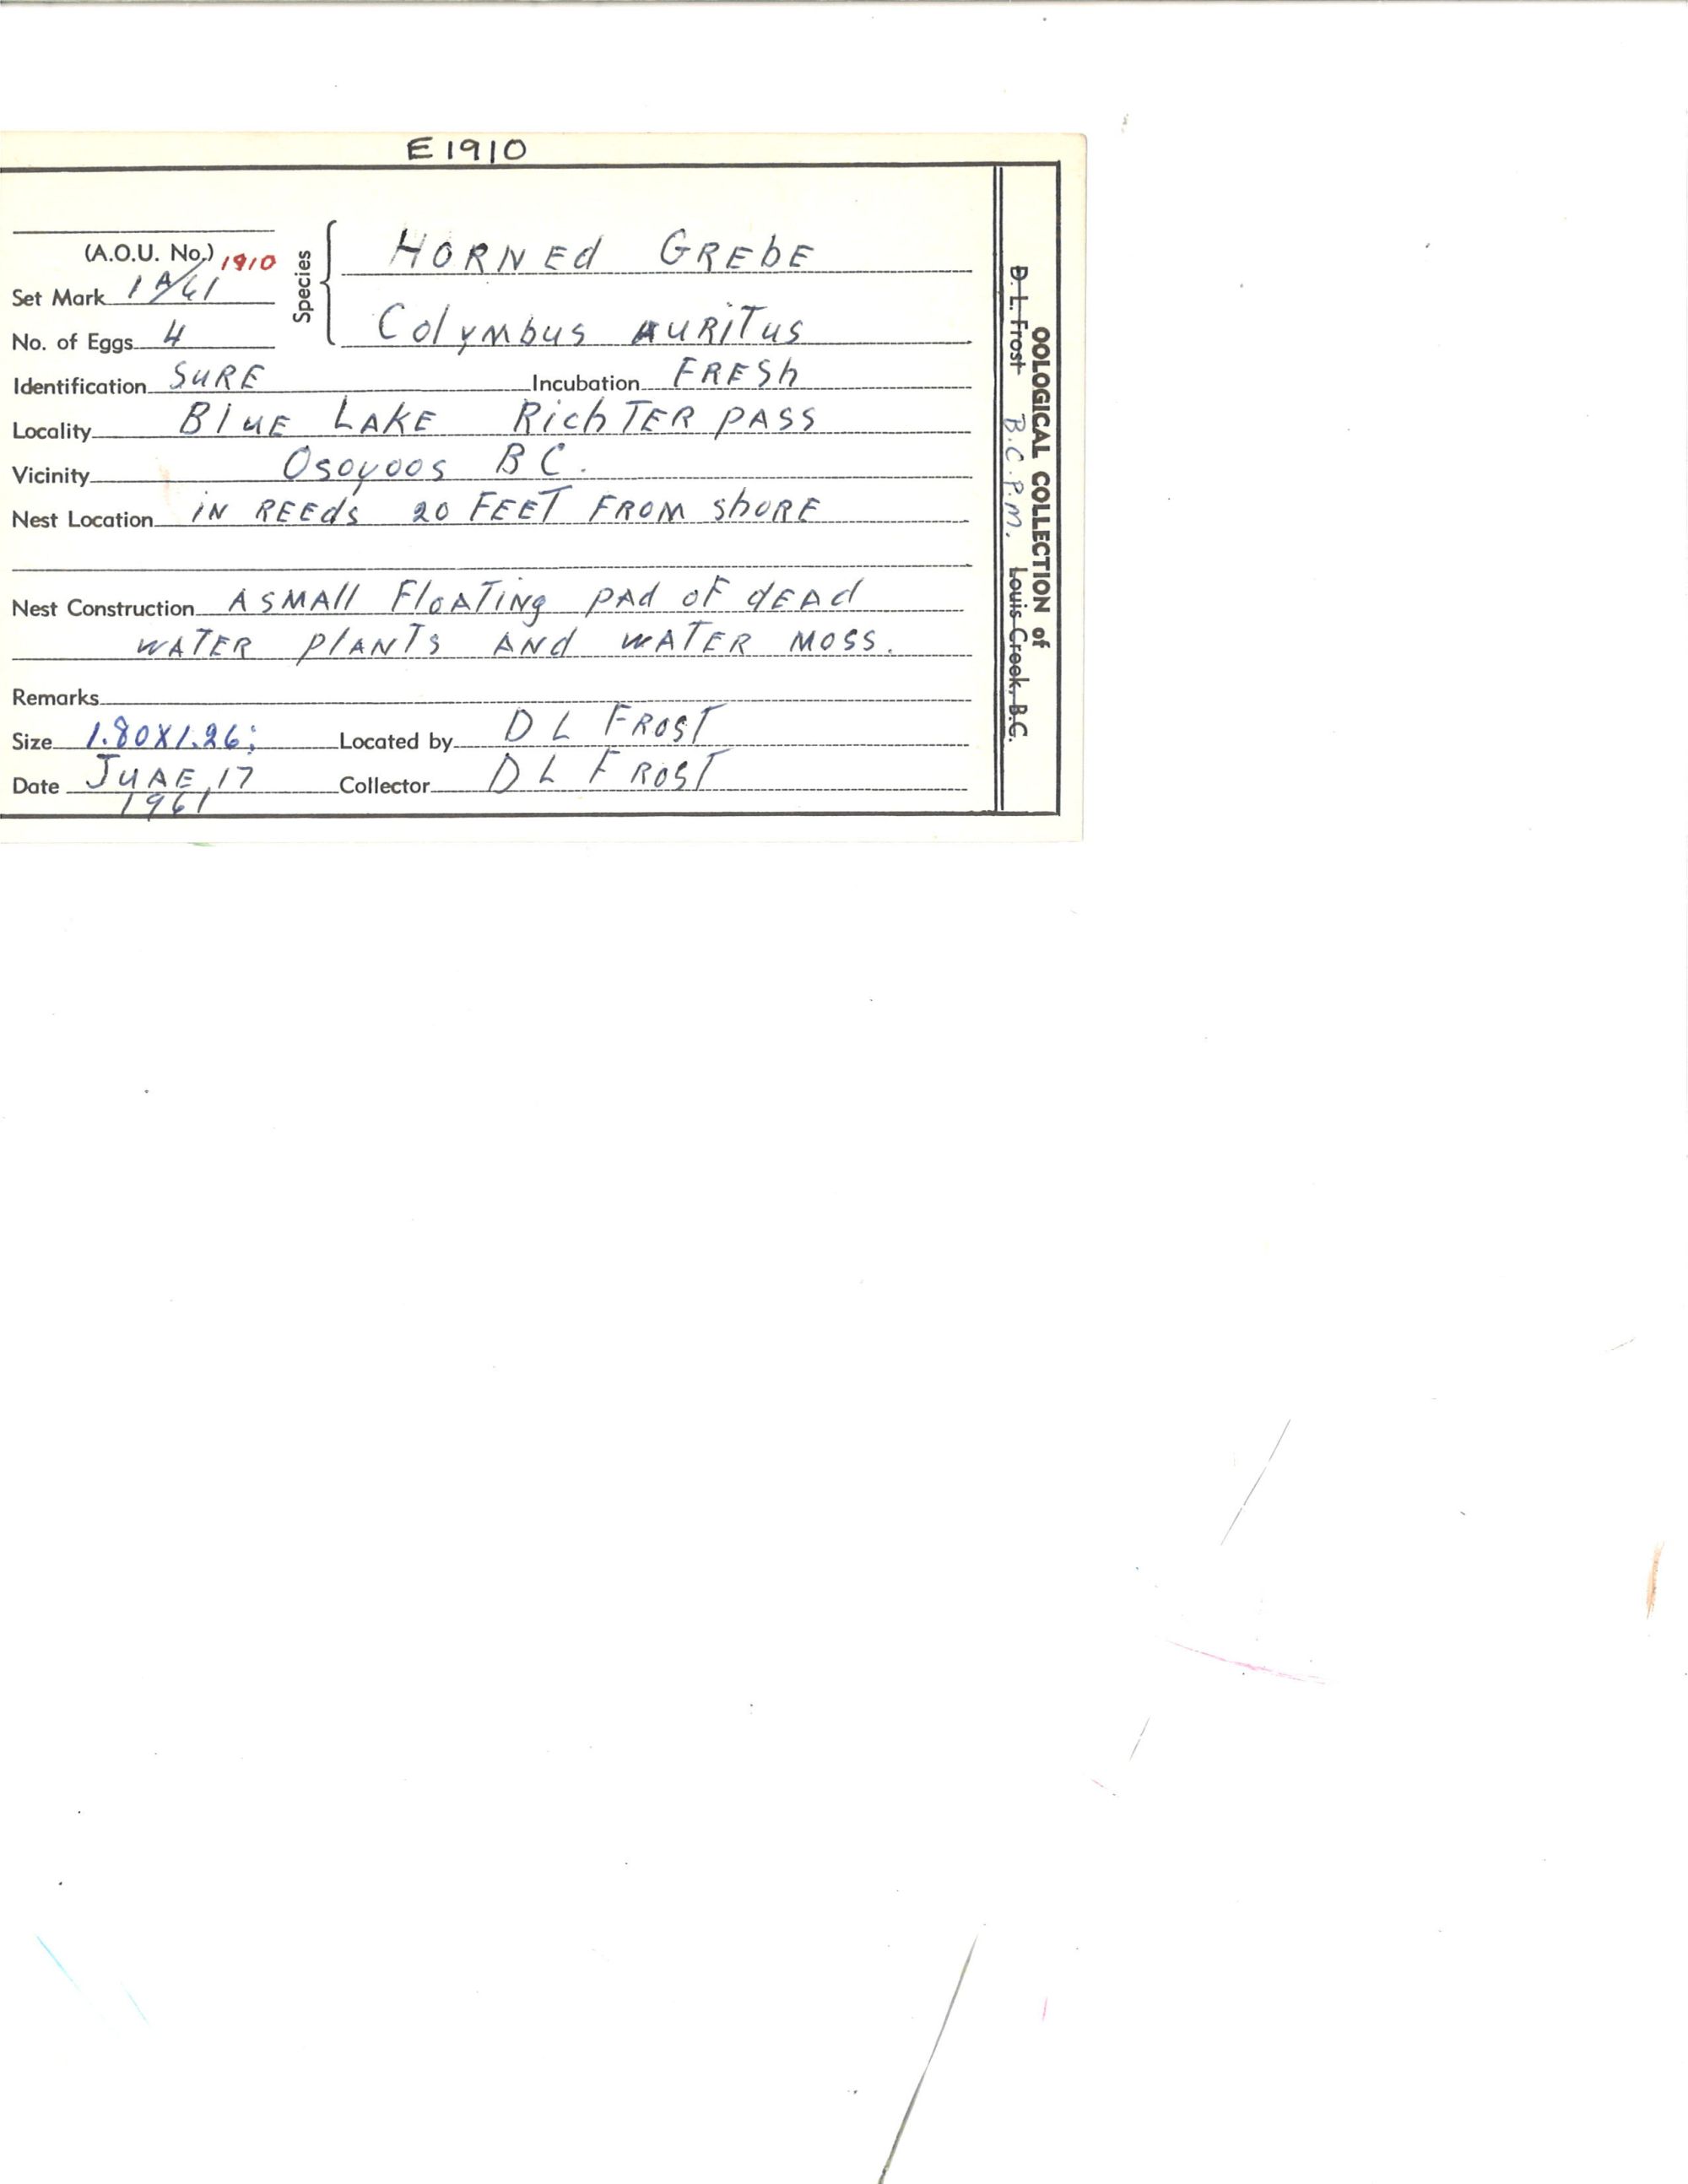 E1910
(A.O.U. No.) 1910
Set Mark 1 A/61
No. of Eggs 4
Species
HORNEd GREbE
Colymbus AURITUS
Identification SURE Incubation FRESh
Locality BluE LAKE RichTER PASS
Vicinity Osoyoos B C.
Nest Location iN REEds 20 FEET FROM ShORE
Nest Construction A SMAll FloATiNg pAd oF dEAd
WATER PlANTS ANd WATER MOSS.
Remarks
Size 1.80X1.26; Located by D L FROST
Date JUNE 17 Collector D L FROST
1961
OOLOGICAL COLLECTION of
D. L. Frost B.C.P.M. Louis Creek, B.C.